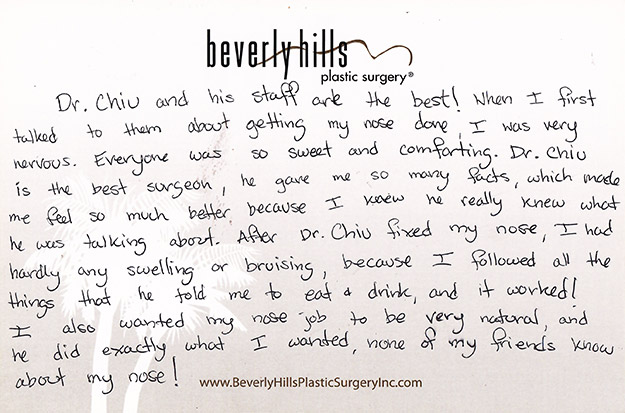 beverly hills
plastic surgery®
Dr. Chiu and his staff are the best! When I first
talked to them about getting my nose done, I was very
nervous. Everyone was so sweet and comforting. Dr. Chiu
is the best surgeon, he gave me so many facts, which made
me feel so much better because I knew he really knew what
he was talking about. After Dr. Chiu fixed my nose, I had
hardly any swelling or bruising, because I followed all the
things that he told me to eat & drink, and it worked!
I also wanted my nose job to be very natural, and
he did exactly what I wanted, none of my friends know
about my nose!
www.BeverlyHillsPlasticSurgeryInc.com